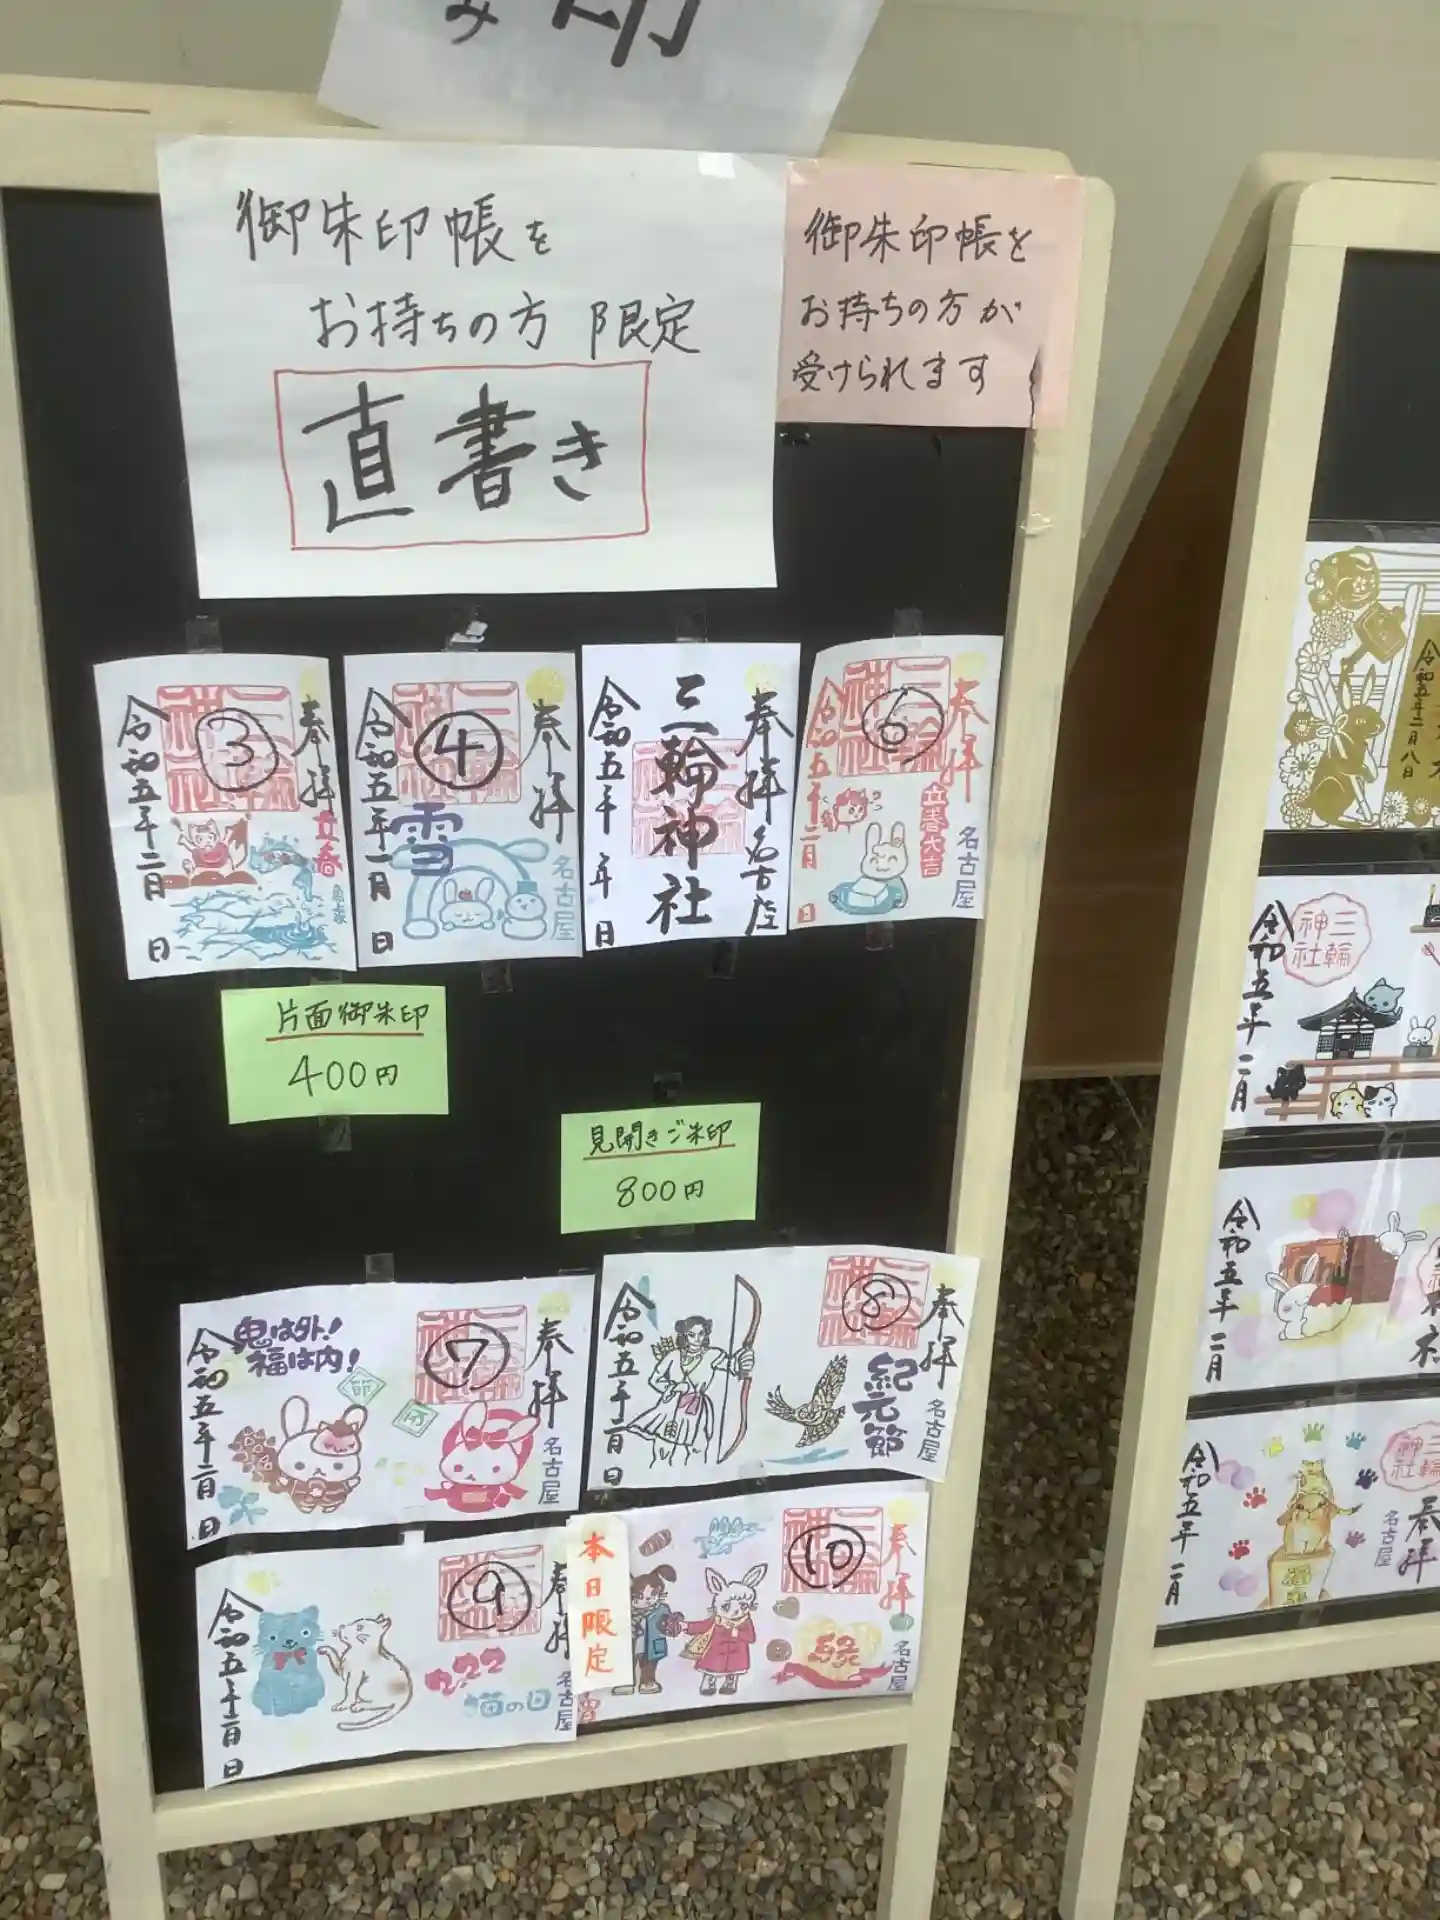 御朱印帳を
お持ちの方 限定
直書き
御朱印帳を
お持ちの方が
受けられます
奉拝
③
立春
令和五年二月 日
奉拝
④
雪
名古屋
令和五年一月 日
奉拝 名古屋
三輪神社
令和五年 年 日
奉拝
⑥
立春大吉
名古屋
令和五年二月 日
片面御朱印
400円
見開きご朱印
800円
奉拝
⑦
名古屋
鬼は外!
福は内!
節
分
令和五年二月 日
奉拝
⑧
紀元節
名古屋
令和五年二月 日
奉拝
⑨
222
猫の日
名古屋
令和五年二月 日
本日限定
奉拝
⑩
名古屋
令和五年二月八日
三輪神社
令和五年二月
令和五年二月
三輪神社
奉拝
名古屋
令和五年二月